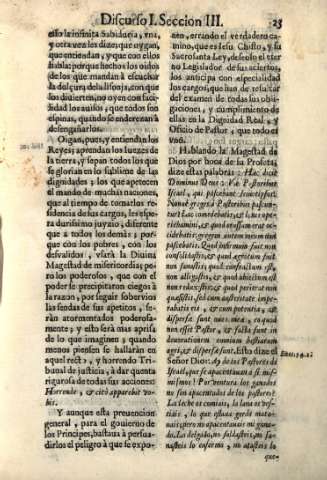 Discurso I. Seccion III. 25
esso la infinita Sabiduria, vna,
y otra vez les dize; que oygan,
que entiendan, y que con ellos
habla; porque hechos los oidos
de los que mandan à escuchar
la dulçura de la lisonja, con que
los diuierten, no oyen con faci-
lidad los auisos, que todos son
espinas, quando se enderezan à
desengañarlos.
Oigan, pues, y entiendan los
Reyes; aprendan los Iuezes de
la tierra, y sepan todos los que
se glorian en lo sublime de las
dignidades, y los que apetecen
el mando de muchas naciones,
que al tiempo de tomarles re-
sidencia de sus cargos, les espe-
ra durissimo juyzio, diferente
que à todos los demàs; por-
que con los pobres, con los
desvalidos, vsarà la Diuina
Magestad de misericordias; pe-
ro los poderosos, que con el
poder se precipitaron ciegos à
la razon, por seguir sobervios
las sendas de sus apetitos, se-
ràn atormentados poderosa-
mente; y esto serà mas aprisa
de lo que imaginen; quando
menos piensen se hallaràn en
aquel recto, y horrendo Tribu-
nal de justicia, à dar quenta
rigurosa de todas sus acciones:
Horrende, & citò apparebit vo-
bis.
Y aunque esta preuencion
general, para el gouierno de
los Principes, bastaua à persua-
dirlos el peligro à que se expo-
nen, errando el verdadero ca-
mino, que es Iesu Christo, y su
Sacrosanta Ley, deseoso el eter-
no Legislador de sus aciertos,
les anticipa con especialidad
los cargos, que han de resultar
del examen de todas sus obli-
gaciones, y cumplimiento de
ellas en la Dignidad Real, y
Oficio de Pastor, que todo es
vno.
Hablando la Magestad de
Dios por boca de su Profeta,
dize estas palabras: Hæc dicit
Dominus Deus: Væ Pastoribus
Israel, qui pascebant semetipsos!
Nonne greges à Pastoribus pascun-
tur? Lac comedebatis, & lanis ope-
riebamini, & quod crassum erat oc-
cidebatis: gregem autem meum non
pascebatis. Quod infirmum fuit non
consolidastis, & quod ægrotum fuit
non sanastis, quod confractum est,
non alligastis, & quod abiectum est
non reduxistis, & quod perierat non
quæsistis, sed cum austeritate impe-
rabatis eis, & cum potentia, &
dispersæ sunt oues meæ, eo quod
non esset Pastor, & factæ sunt in
deuorationem omnium bestiarum
agri, & dispersæ sunt. Esto dize el Ezec. 34. 2.
Señor Dios: Ay de los Pastores de
Israel, que se apacentauan à si mis-
mismos! Por ventura los ganados
no son apacentados de los pastores?
La leche os comiais, la lana os ves-
tiais, lo que estaua gordo mata-
uais; pero no apacentauais mi gana-
do. Lo delgado, no saldasteis, no sa-
nasteis lo enfermo, no atasteis lo
que-